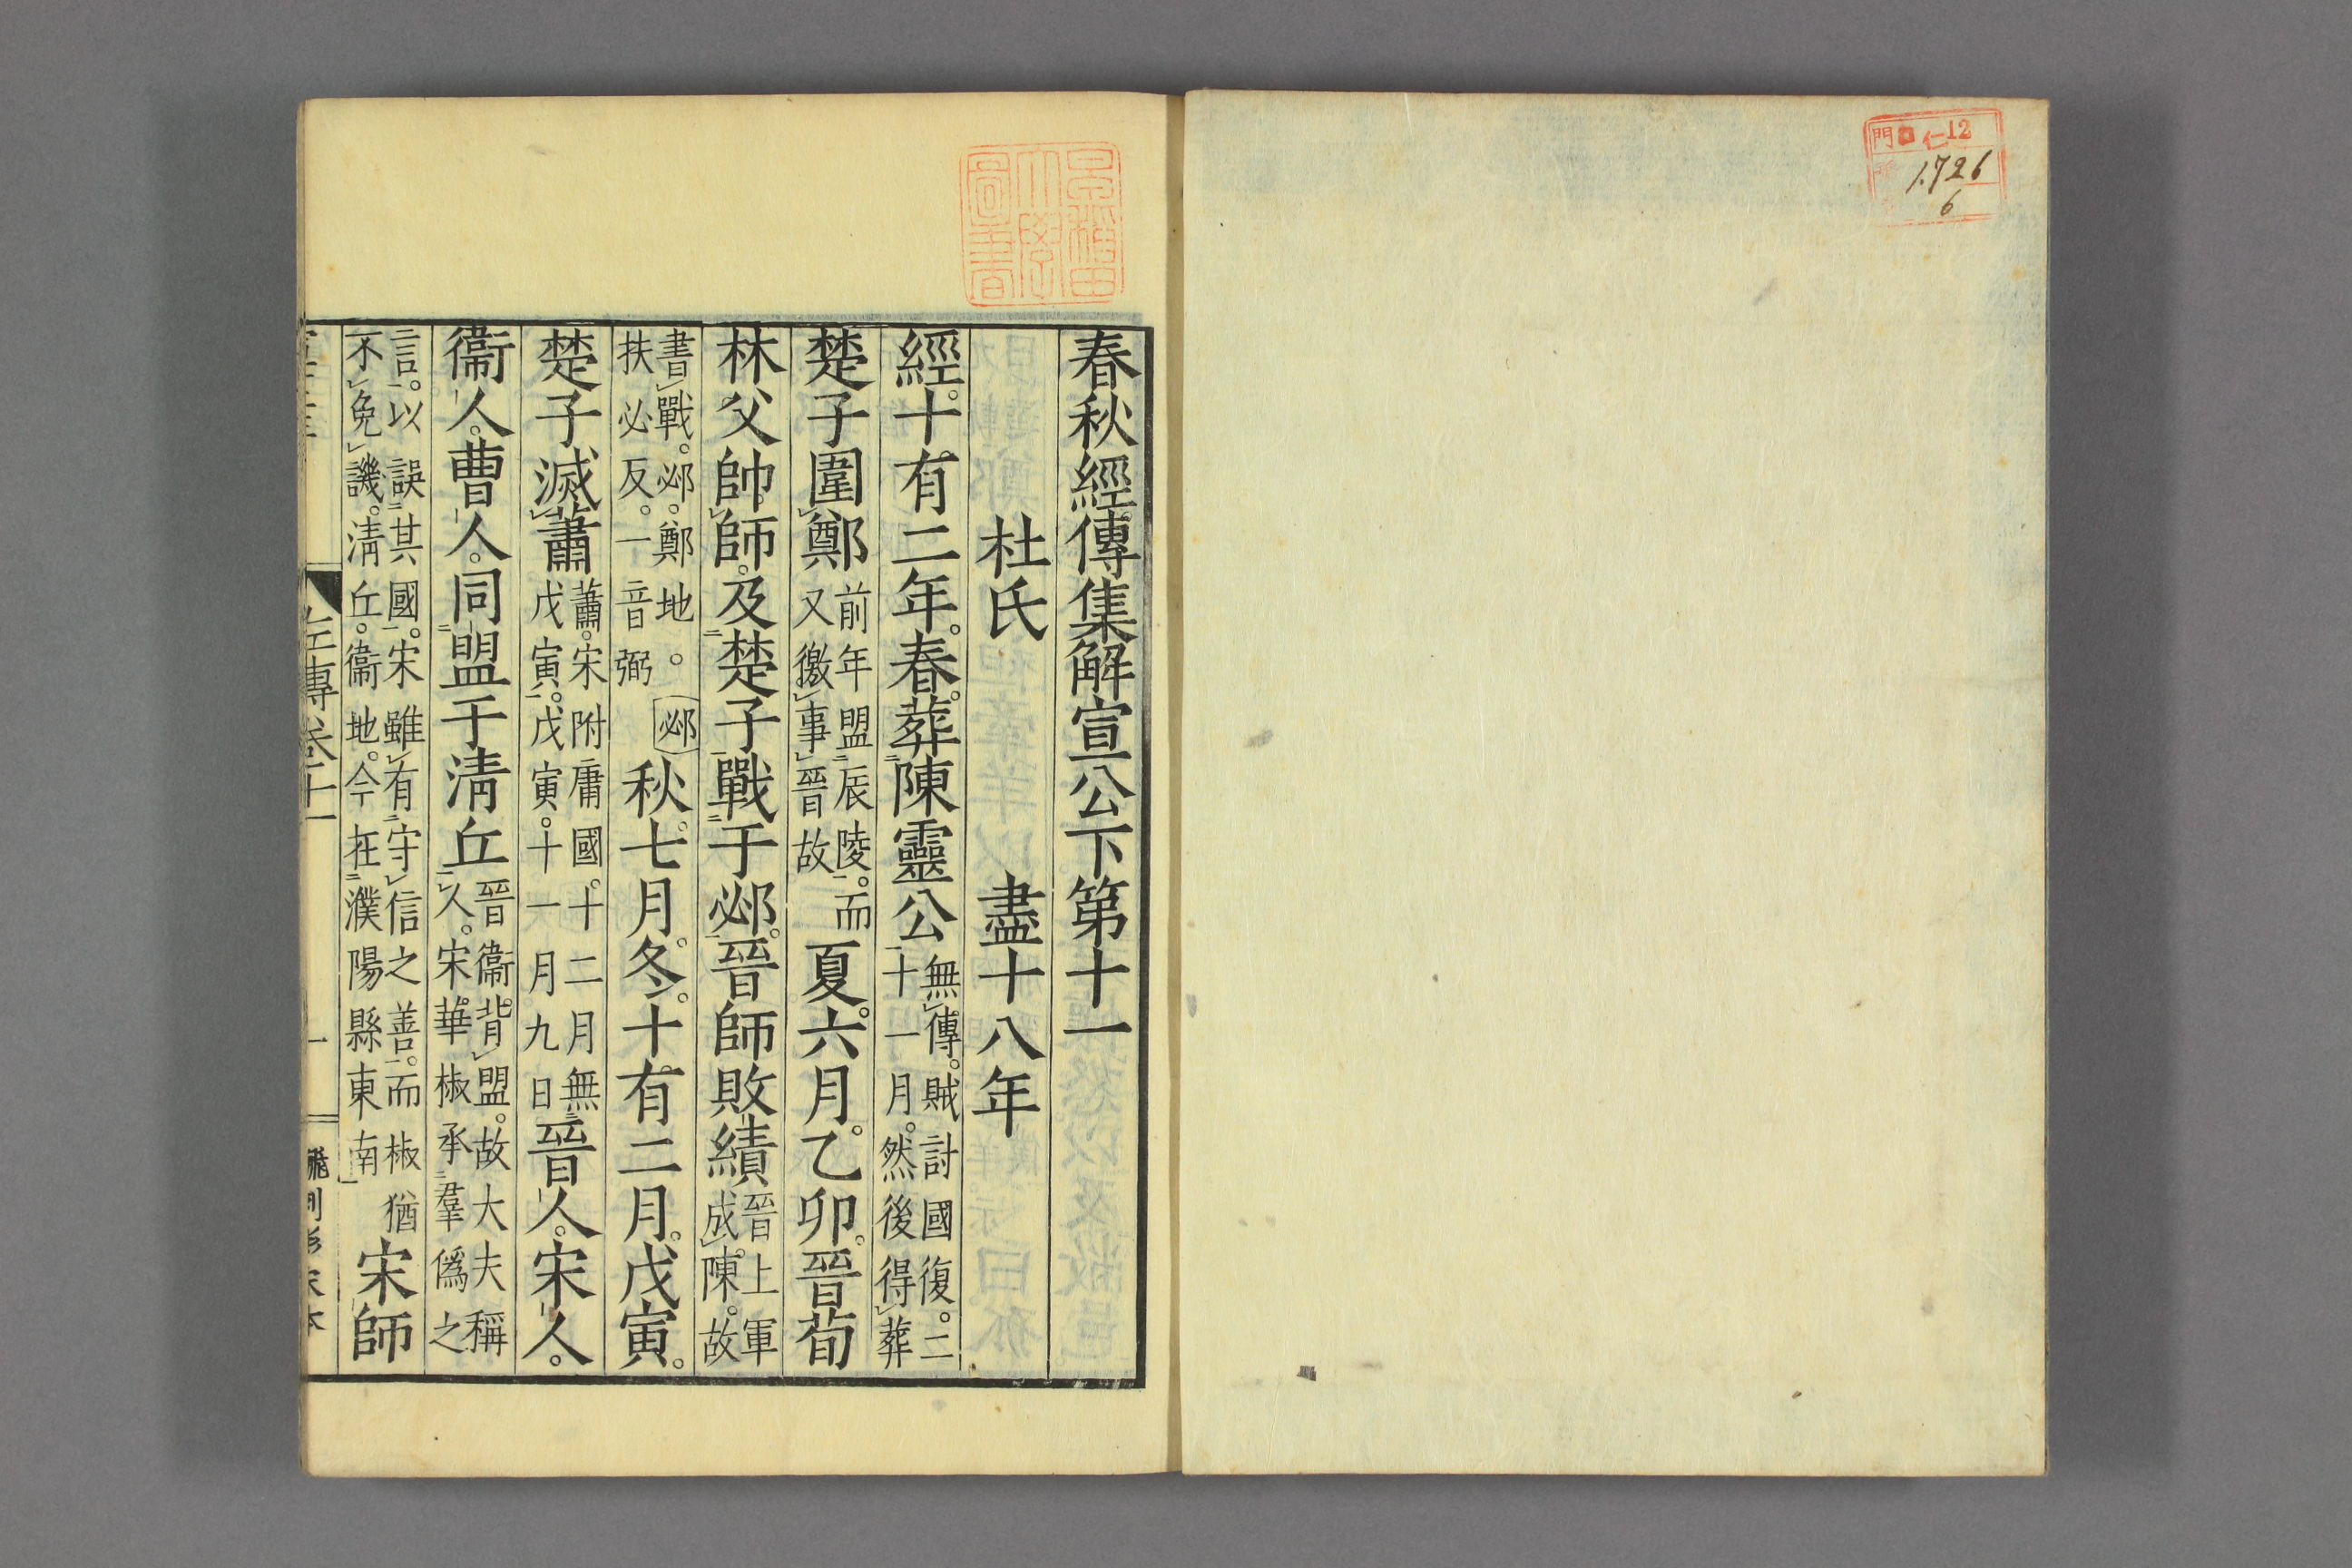 門 仁12
1726
6
早稲田大學圖書
春秋經傳集解宣公下第十一
杜氏 盡十八年
經。十有二年。春。葬陳靈公無傳。賊討國復。二十一月。然後得葬
楚子圍鄭前年盟辰陵。而又徼事晉故夏。六月。乙卯。晉荀
林父帥師。及楚子戰于邲。晉師敗績晉上軍成。陳。故
書戰。邲。鄭地。邲扶必反。一音弼秋。七月。冬。十有二月。戊寅。
楚子滅蕭蕭。宋附庸國。十二月無戊寅。戊寅。十一月九日晉人。宋人。
衞人。曹人。同盟于清丘晉衞背盟。故大夫稱人。宋華椒承羣僞之
言。以誤其國。宋雖有守信之善。而椒猶不免譏。清丘。衞地。今在濮陽縣東南宋師
左傳卷十一
一